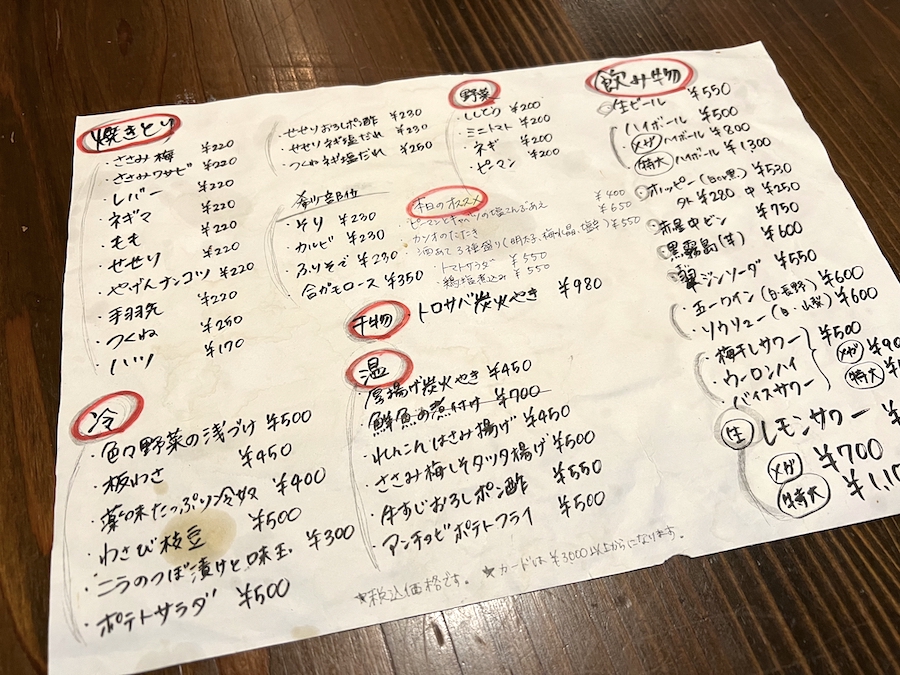 焼きとり
・ささみ梅 ¥220
・ささみワサビ ¥220
・レバー ¥220
・ネギマ ¥220
・もも ¥220
・せせり ¥220
・やげんナンコツ ¥220
・手羽先 ¥220
・つくね ¥250
・ハツ ¥170
・せせりおろしポン酢 ¥230
・せせりネギ塩だれ ¥230
・つくねネギ塩だれ ¥250
・そり ¥230
・カルビ ¥230
・ふりそで ¥230
・合がもロース ¥350
野菜
・ししとう ¥200
・ミニトマト ¥200
・ネギ ¥200
・ピーマン ¥200
本日のオススメ
・ピーマンとキャベツの塩こんぶあえ ¥400
・カツオのたたき ¥650
・酒あて3種盛り(明太子、梅水晶、塩辛) ¥550
・トマトサラダ ¥550
・鶏塩煮込み ¥550
干物
・トロサバ炭火やき ¥980
温
・厚揚げ炭火やき ¥450
・鮮魚の煮付け ¥700
・れんこんはさみ揚げ ¥450
・ささみ梅しそタツタ揚げ ¥500
・牛すじおろしポン酢 ¥550
・アンチョビポテトフライ ¥500
冷
・色々野菜の浅づけ ¥500
・板わさ ¥450
・薬味たっぷり冷奴 ¥400
・わさび枝豆 ¥500
・ニラのつぼ漬けと味玉 ¥300
・ポテトサラダ ¥500
★税込価格です。 ★カードは¥3000以上からになります。
飲み物
・生ビール ¥550
・ハイボール ¥500
メガ ハイボール ¥800
特大 ハイボール ¥1,300
・ホッピー(白or黒) ¥530
外¥280 中¥250
・赤星中ビン ¥750
・黒霧島(芋) ¥600
・翠ジンソーダ ¥550
・玉一ワイン(白・長野) ¥600
・ソウリュー(白・山梨) ¥600
・梅干しサワー
・ウーロンハイ
・バイスサワー
¥500
メガ ¥90
特大
生 レモンサワー
メガ ¥700
特大 ¥1,10